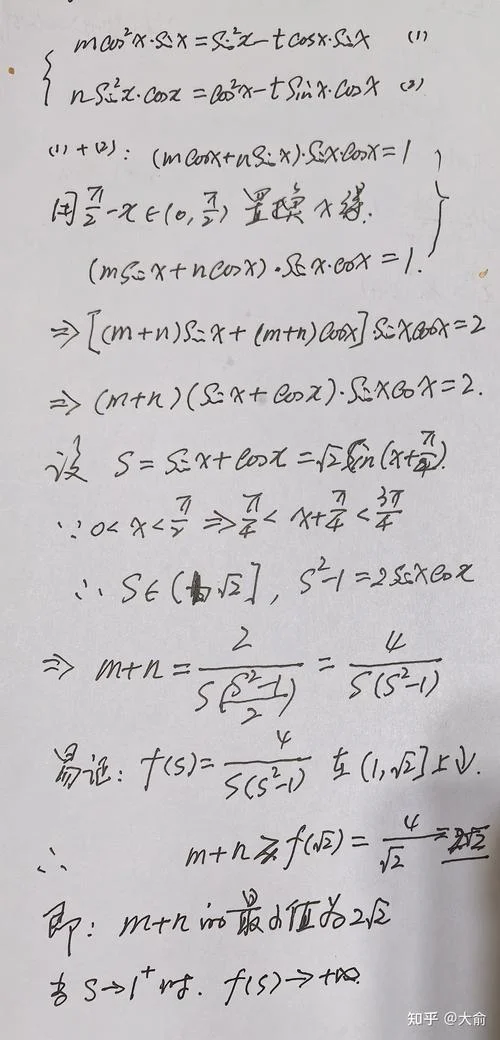 { mcos²x·sinx=sin²x-tcosx·sinx (1)
nsin²x·cosx=cos²x-tsinx·cosx (2)
(1)+(2): (mcosx+nsinx)·sinx·cosx=1
用π/2-x∈(0,π/2) 置换x得.
(msinx+ncosx)·sinx·cosx=1.
⇒[(m+n)sinx+(m+n)cosx]sinxcosx=2
⇒(m+n)(sinx+cosx)·sinxcosx=2.
设 S=sinx+cosx=√2sin(x+π/4).
∵0<x<π/2⇒π/4<x+π/4<3π/4
∴S∈(1,√2], S²-1=2sinxcosx
⇒ m+n=2/(S(S²-1)/2)=4/(S(S²-1))
易证: f(S)=4/(S(S²-1)) 在(1,√2]上↓.
∴ m+n≥f(√2)=4/√2=2√2
即: m+n的最小值为2√2
当S→1⁺时. f(S)→+∞.
知乎 @大俞